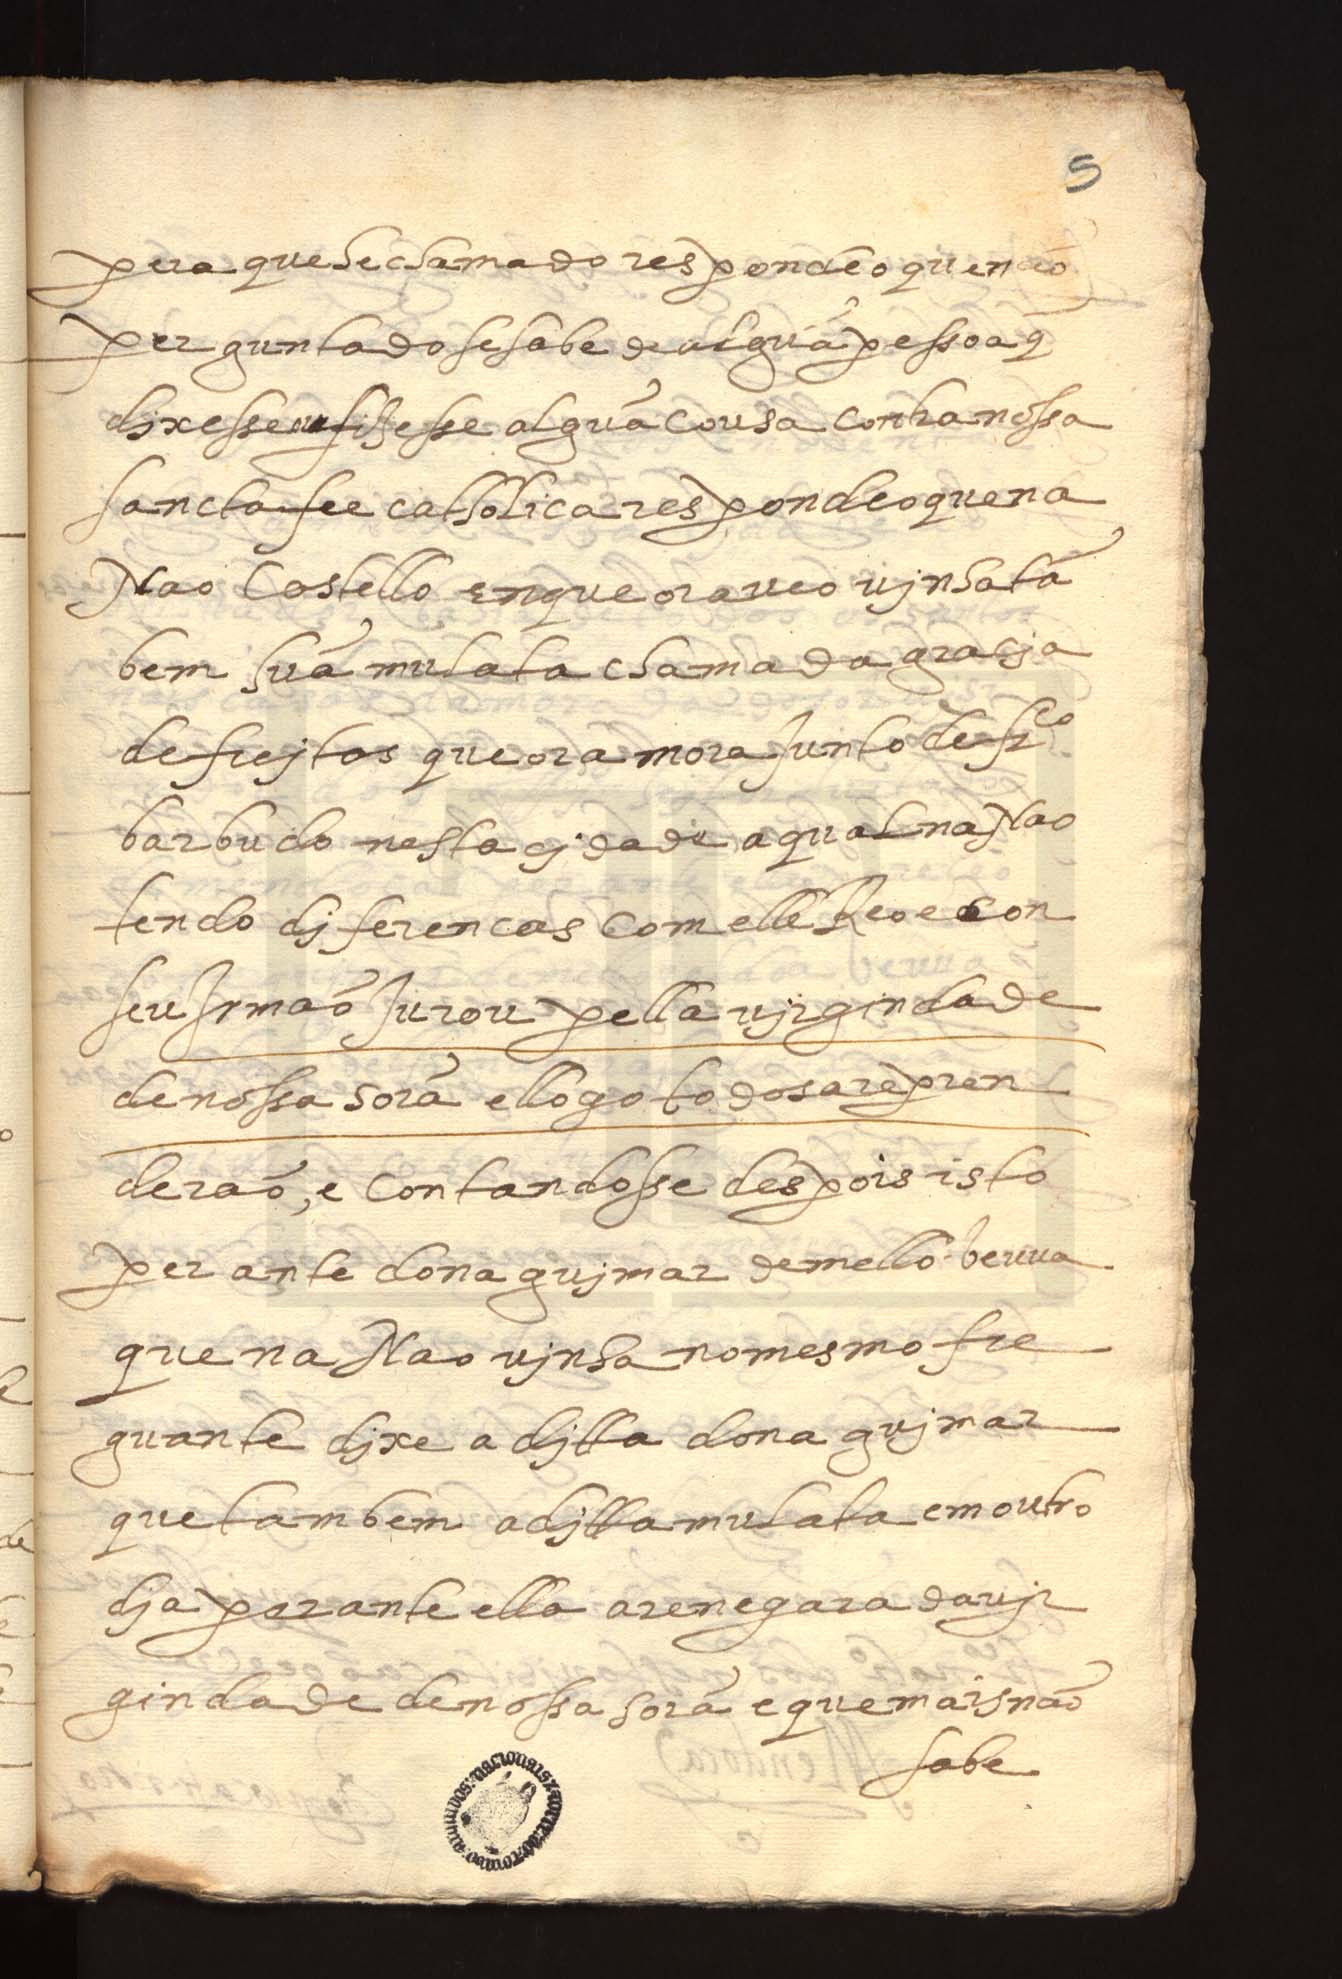 5
pera que he chamado respondeo que não
perguntado se sabe de alguã pessoa q̃
dixesse ou fizesse alguã cousa contra nossa
sancta fee catholica respondeo que na
Nao Castello em que ora veo vjnha tã
bem huã mulata chamada gracja
de frejtas que ora mora Junto de frco
barbudo nesta cjdade a qual na Nao
tendo djferencas com elle Reo e con
seu Jrmaõ Jurou pella vjrgindade
de nossa sorã e llogo todos a repren
deraõ, e contandosse despois isto
perante dona gujmar de mello veuua
que na Nao vjnha no mesmo fre
guante djxe a djtta dona gujmar
que tambem a djtta mulata em outro
dja perante ella arenegara da vjr
gindade de nossa sorã e que mais naõ
sabe